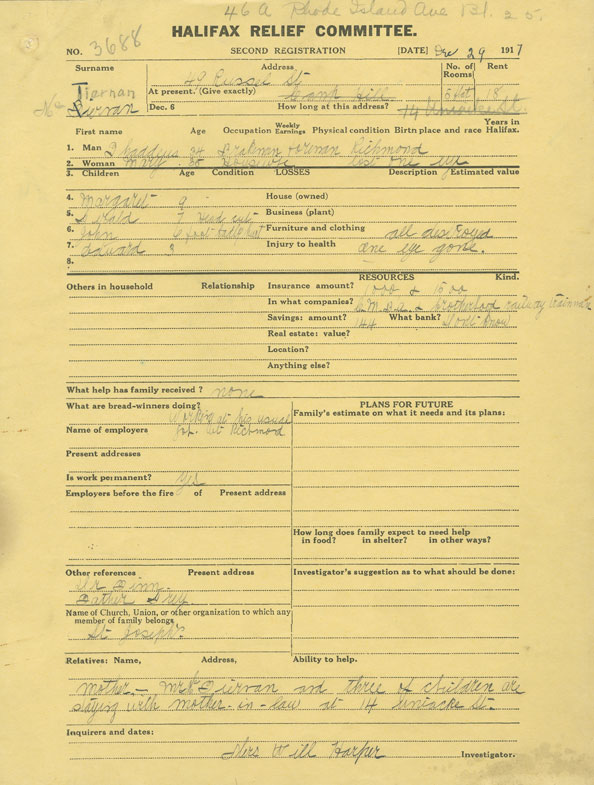 46 A Rhode Island Ave Bl. 25.
HALIFAX RELIEF COMMITTEE.
NO. 3688 SECOND REGISTRATION [DATE] Dec 29 1917
Surname Address No. of Rooms Rent
Tiernan 49 Russel St
At present. (Give exactly) 6 flat 18
Dec. 6 How long at this address? 14
First name Age Occupation Weekly Earnings Physical condition Birth place and race Years in Halifax.
1. Man Thaddius 34 Brakeman foreman Richmond
2. Woman Mary housewife lost one eye
3. Children Age Condition LOSSES Description Estimated value
4. Margaret 9 House (owned)
5. 7 head cut Business (plant)
6. John 6 foot Furniture and clothing all destroyed
7. Edward 3 Injury to health one eye gone.
8.
RESOURCES Kind.
Others in household Relationship Insurance amount? 1000 & 1500
In what companies? C.M.B.A. & Brotherhood railway trainmen
Savings: amount? 144 What bank? Don't know
Real estate: value?
Location?
Anything else?
What help has family received? none
What are bread-winners doing? Working at his usual
Name of employers job. at Richmond
Present addresses
Is work permanent? Yes
Employers before the fire of Present address
PLANS FOR FUTURE
Family's estimate on what it needs and its plans:
How long does family expect to need help
in food? in shelter? in other ways?
Other references Present address
Investigator's suggestion as to what should be done:
Father Grey
Name of Church, Union, or other organization to which any
member of family belongs
St Joseph's
Relatives: Name, Address, Ability to help.
mother. – Mrs and three of children are
staying with mother-in-law at 14 Uniacke St.
Inquirers and dates:
Mrs Will Harper Investigator.